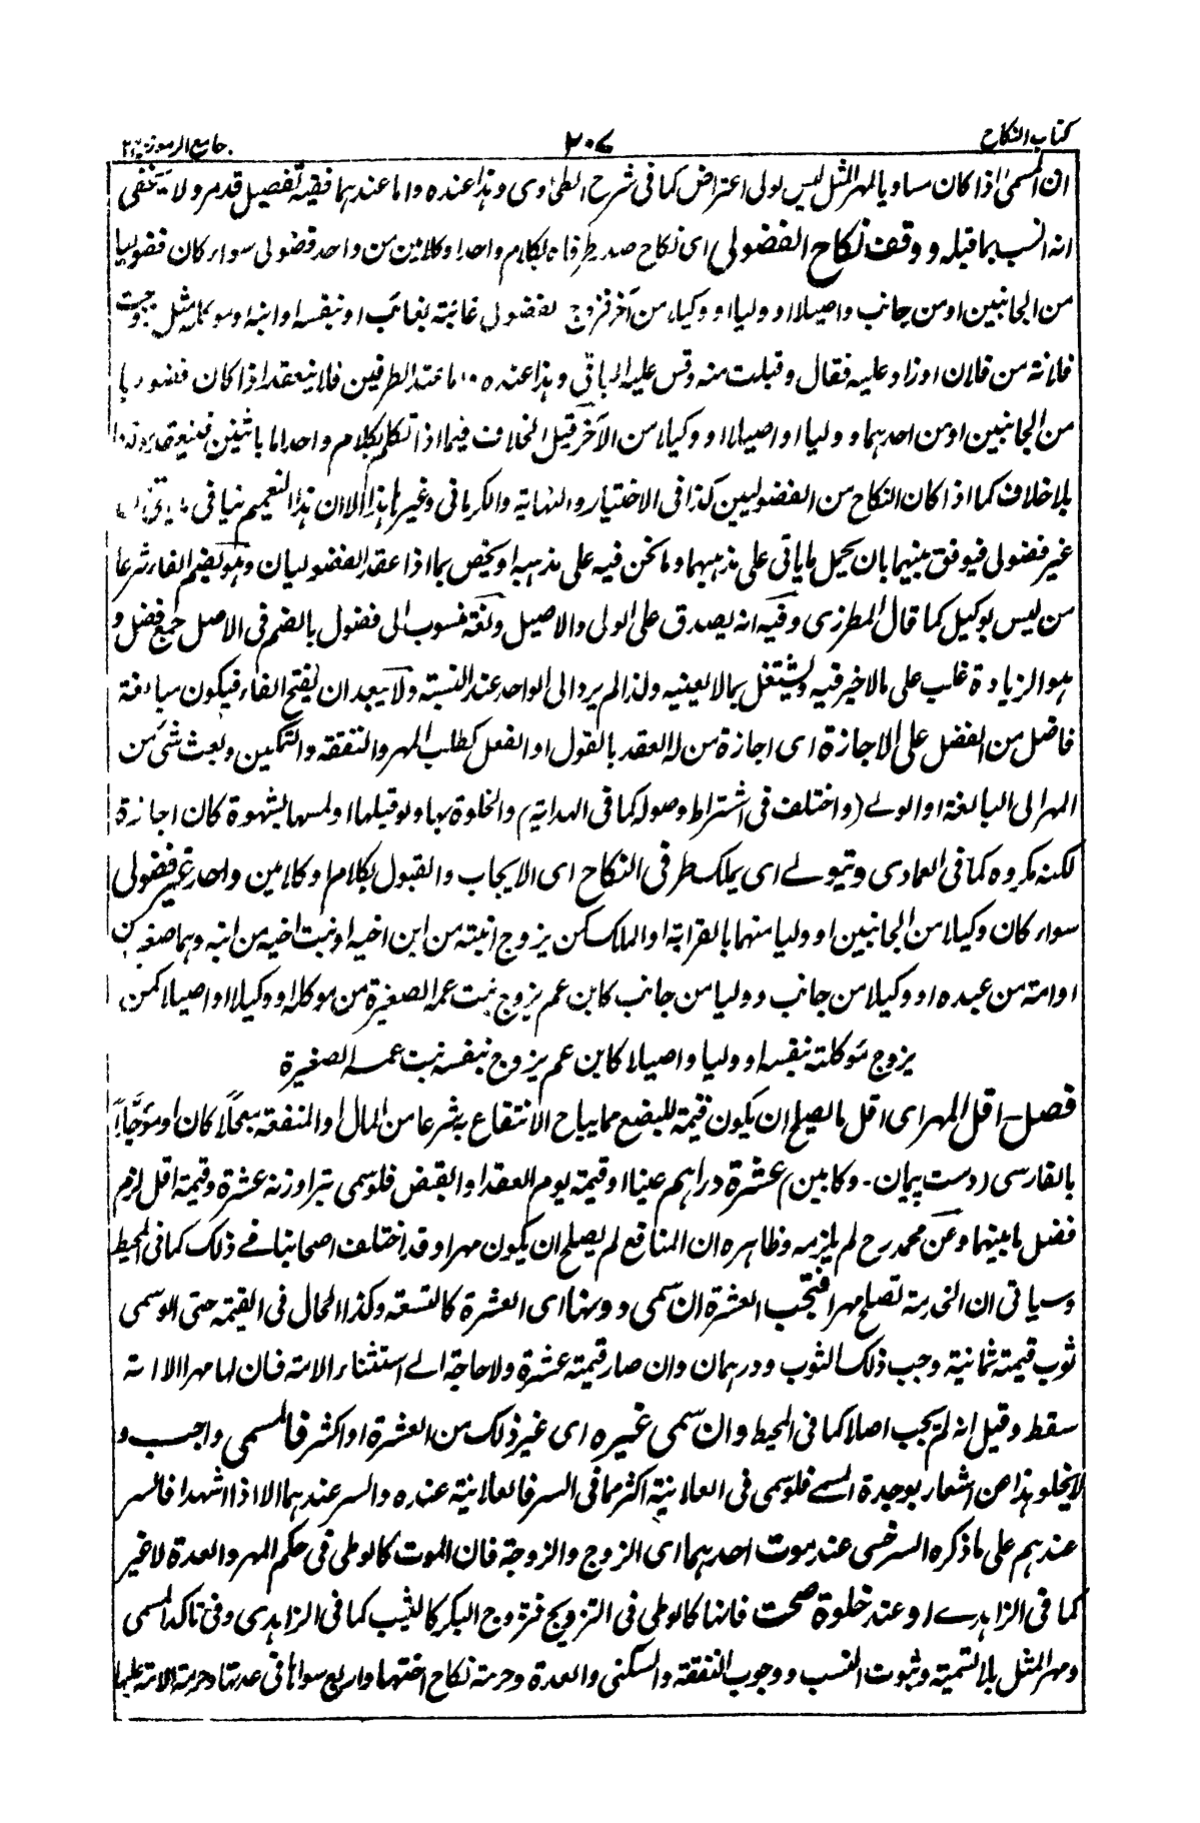 كتاب النكاح ٢٠٧ جامع الرموز ج ٢
ان المسمى اذا كان مساويا لمهر المثل ليس لولى اعتراض كما فى شرح الطحاوى وهذا عنده واما عندهما ففيه تفصيل قد مر ولا يخفى
انه انسب بما قبله ووقف نكاح الفضولى اى نكاح صدر طرفاه بكلام واحد او كلامين من واحد فضولى سواء كان فضوليا
من الجانبين او من جانب واصيلا او وليا او وكيلا من آخر فزوج الفضولى غائبة بغائب او بنفسه او ابنه او موكله مثل زوجت
فلانة من فلان او زاد عليه فقال وقبلت منه وقس عليه الباقى وهذا عنده واما عند الطرفين فلا ينعقد اذا كان فضوليا
من الجانبين او من احدهما ووليا او اصيلا او وكيلا من الآخر قيل الخلاف فيما اذا تكلم بكلام واحد اما باثنين فينعقد موقوفا
بلا خلاف كما اذا كان النكاح من الفضوليين كذا فى الاختيار والنهاية والكرمانى وغيرها هذا الا ان هذا التعميم ينافى ما يأتى من
غير فضولى فيوفق بينهما بان يحمل ما يأتى على مذهبهما وما نحن فيه على مذهبه او يخص بما اذا عقد الفضوليان وهو بضم الفاء شرعا
من ليس بوكيل كما قال المطرزى وفيه انه يصدق على الولى والاصيل ولغة منسوب الى فضول بالضم فى الاصل جمع فضل و
هو الزيادة غلب على ما لا خير فيه ويشتغل بما لا يعنيه ولذا لم يرد الى الواحد عند النسبة ولا يبعد ان يفتح الفاء فيكون مبالغة
فاضل من الفضل على الاجازة اى اجازة من له العقد بالقول او الفعل كطلب المهر والنفقة والتمكين وبعث شئ من
المهر الى البالغة او الولى (واختلف فى اشتراط وصوله كما فى الهداية) والخلوة بها ولو قبلها او لمسها بشهوة كان اجازة
لكنه مكروه كما فى العمادى ويتولى اى يملك طرفى النكاح اى الايجاب والقبول بكلام او كلامين واحد غير فضولى
سواء كان وكيلا من الجانبين او وليا منهما بالقرابة او الملك كمن يزوج ابنته من ابن اخيه او بنت اخيه من ابنه وهما صغيران
او امته من عبده او وكيلا من جانب ووليا من جانب كابن عم يزوج بنت عمه الصغيرة من موكله او وكيلا او اصيلا كمن
يزوج موكلته بنفسه او وليا واصيلا كابن عم يزوج بنفسه بنت عمه الصغيرة
فصل- اقل المهر اى اقل ما يصلح ان يكون قيمة للبضع مما يباح الانتفاع به شرعا من المال او المنفعة معجلا كان او مؤجلا
بالفارسى (دست پيمان- وكابين) عشرة دراهم عينا او قيمة يوم العقد او القبض فلو سمى تبرا وزنه عشرة وقيمته اقل لزم
فضل ما بينهما وعن محمد رح لم يلزمه وظاهره ان المنافع لم يصلح ان يكون مهرا وقد اختلف اصحابنا فى ذلك كما فى المحيط
وسيأتى ان الخدمة تصلح مهرا فتجب العشرة ان سمى دونها اى العشرة كالتسعة وكذا الحال فى القيمة حتى لو سمى
ثوب قيمته ثمانية وجب ذلك الثوب ودرهمان وان صار قيمته عشرة ولا حاجة الى استثناء الامة فان لها مهرا الا انه
سقط وقيل انه لم يجب اصلا كما فى المحيط وان سمى غيره اى غير ذلك من العشرة او اكثر فالمسمى واجب و
لا يخلو هذا من اشعار بوحدة المسمى فلو سمى فى العلانية اكثر مما فى السر فالعلانية عنده والسر عندهما الا اذا اشهدا فالسر
عندهم على ما ذكره السرخسى عند موت احدهما اى الزوج والزوجة فان الموت كالوطى فى حكم المهر والعدة لا غير
كما فى الزاهدى او عند خلوة صحت فانها كالوطى فى التزويج فتزوج البكر كالثيب كما فى الزاهدى وفى تاكد المسمى
ومهر المثل بلا تسمية وثبوت النسب ووجوب النفقة والسكنى والعدة وحرمة نكاح اختها واربع سواها فى عدتها وحرمة الامة عليها